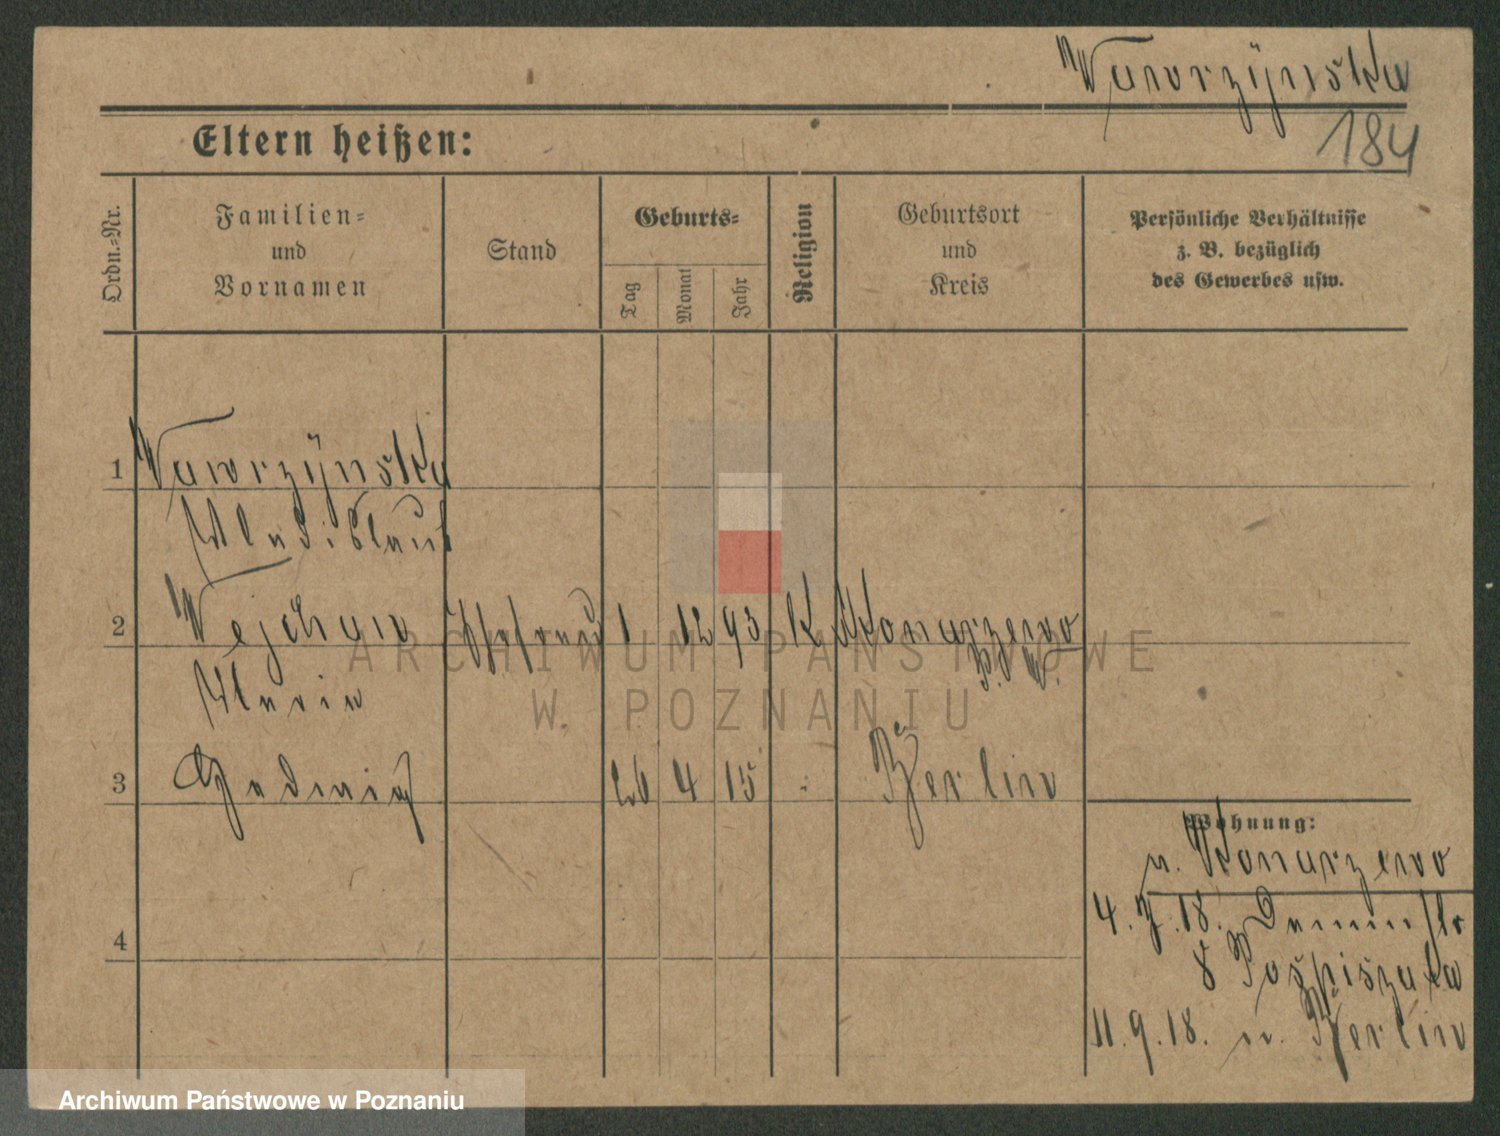 Wawrzÿnska
184
Eltern heißen:
Ordn.=Nr.
Familien=
und
Vornamen
Stand
Geburts=
Tag
Monat
Jahr
Religion
Geburtsort
und
Kreis
Persönliche Verhältnisse
z. B. bezüglich
des Gewerbes usw.
1 Wawrzÿnska
Wladislaus
2 Wejchan Ehefrau 1 12 93 K Konarzewo
P. W.
Maria
3 Hedwig 26 4 15 Berlin
Wohnung:
n. Konarzewo
4. 7. 18.
8
11. 9. 18. n. Berlin
4
ARCHIWUM PAŃSTWOWE
W POZNANIU
Archiwum Państwowe w Poznaniu